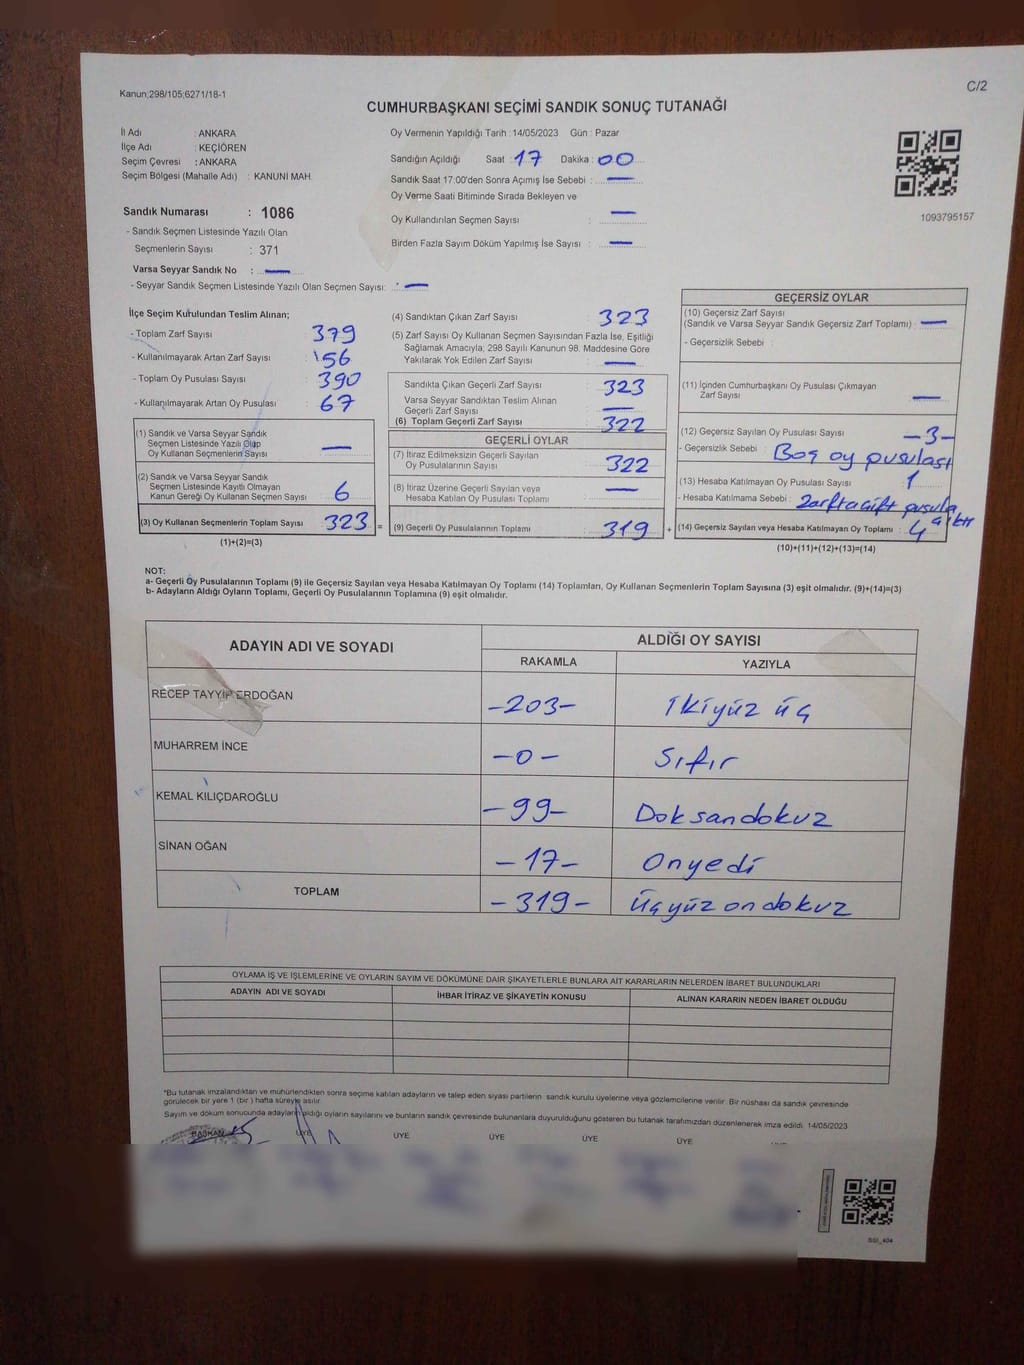 Kanun;298/105;6271/18-1
C/2
CUMHURBAŞKANI SEÇİMİ SANDIK SONUÇ TUTANAĞI
İl Adı : ANKARA
İlçe Adı : KEÇİÖREN
Seçim Çevresi : ANKARA
Seçim Bölgesi (Mahalle Adı) : KANUNİ MAH.
Oy Vermenin Yapıldığı Tarih : 14/05/2023 Gün : Pazar
Sandığın Açıldığı Saat 17 Dakika : 00
Sandık Saat 17:00'den Sonra Açımış İse Sebebi : —
Oy Verme Saati Bitiminde Sırada Bekleyen ve
Oy Kullandırılan Seçmen Sayısı : —
Birden Fazla Sayım Döküm Yapılmış İse Sayısı : —
1093795157
Sandık Numarası : 1086
- Sandık Seçmen Listesinde Yazılı Olan
Seçmenlerin Sayısı : 371
Varsa Seyyar Sandık No : —
- Seyyar Sandık Seçmen Listesinde Yazılı Olan Seçmen Sayısı: —
İlçe Seçim Kurulundan Teslim Alınan;
- Toplam Zarf Sayısı 379
- Kullanılmayarak Artan Zarf Sayısı 56
- Toplam Oy Pusulası Sayısı 390
- Kullanılmayarak Artan Oy Pusulası 67
(1) Sandık ve Varsa Seyyar Sandık
Seçmen Listesinde Yazılı Olup
Oy Kullanan Seçmenlerin Sayısı —
(2) Sandık ve Varsa Seyyar Sandık
Seçmen Listesinde Kayıtlı Olmayan
Kanun Gereği Oy Kullanan Seçmen Sayısı 6
(3) Oy Kullanan Seçmenlerin Toplam Sayısı 323 =
(1)+(2)=(3)
(4) Sandıktan Çıkan Zarf Sayısı 323
(5) Zarf Sayısı Oy Kullanan Seçmen Sayısından Fazla İse, Eşitliği
Sağlamak Amacıyla; 298 Sayılı Kanunun 98. Maddesine Göre
Yakılarak Yok Edilen Zarf Sayısı —
Sandıkta Çıkan Geçerli Zarf Sayısı 323
Varsa Seyyar Sandıktan Teslim Alınan
Geçerli Zarf Sayısı —
(6) Toplam Geçerli Zarf Sayısı 322
GEÇERLİ OYLAR
(7) İtiraz Edilmeksizin Geçerli Sayılan
Oy Pusulalarının Sayısı 322
(8) İtiraz Üzerine Geçerli Sayılan veya
Hesaba Katılan Oy Pusulası Toplamı —
(9) Geçerli Oy Pusulalarının Toplamı 319 +
GEÇERSİZ OYLAR
(10) Geçersiz Zarf Sayısı
(Sandık ve Varsa Seyyar Sandık Geçersiz Zarf Toplamı) : —
- Geçersizlik Sebebi :
(11) İçinden Cumhurbaşkanı Oy Pusulası Çıkmayan
Zarf Sayısı —
(12) Geçersiz Sayılan Oy Pusulası Sayısı —3—
- Geçersizlik Sebebi : Boş oy pusulası
(13) Hesaba Katılmayan Oy Pusulası Sayısı : 1
- Hesaba Katılmama Sebebi : Zarfta çift pusula
çıktı
(14) Geçersiz Sayılan veya Hesaba Katılmayan Oy Toplamı : 4
(10)+(11)+(12)+(13)=(14)
NOT:
a- Geçerli Oy Pusulalarının Toplamı (9) ile Geçersiz Sayılan veya Hesaba Katılmayan Oy Toplamı (14) Toplamları, Oy Kullanan Seçmenlerin Toplam Sayısına (3) eşit olmalıdır. (9)+(14)=(3)
b- Adayların Aldığı Oyların Toplamı, Geçerli Oy Pusulalarının Toplamına (9) eşit olmalıdır.
ADAYIN ADI VE SOYADI
ALDIĞI OY SAYISI
RAKAMLA YAZIYLA
RECEP TAYYİP ERDOĞAN -203- İkiyüz üç
MUHARREM İNCE -0- Sıfır
KEMAL KILIÇDAROĞLU -99- Doksandokuz
SİNAN OĞAN -17- Onyedi
TOPLAM -319- Üçyüzondokuz
OYLAMA İŞ VE İŞLEMLERİNE VE OYLARIN SAYIM VE DÖKÜMÜNE DAİR ŞİKAYETLERLE BUNLARA AİT KARARLARIN NELERDEN İBARET BULUNDUKLARI
ADAYIN ADI VE SOYADI İHBAR İTİRAZ VE ŞİKAYETİN KONUSU ALINAN KARARIN NEDEN İBARET OLDUĞU
*Bu tutanak imzalandıktan ve mühürlendikten sonra seçime katılan adayların ve talep eden siyasi partilerin sandık kurulu üyelerine veya gözlemcilerine verilir. Bir nüshası da sandık çevresinde
görülecek bir yere 1 (bir ) hafta süreyle asılır.
Sayım ve döküm sonucunda adayların aldığı oyların sayılarını ve bunların sandık çevresinde bulunanlara duyurulduğunu gösteren bu tutanak tarafımızdan düzenlenerek imza edildi. 14/05/2023
BAŞKAN ÜYE ÜYE ÜYE ÜYE ÜYE